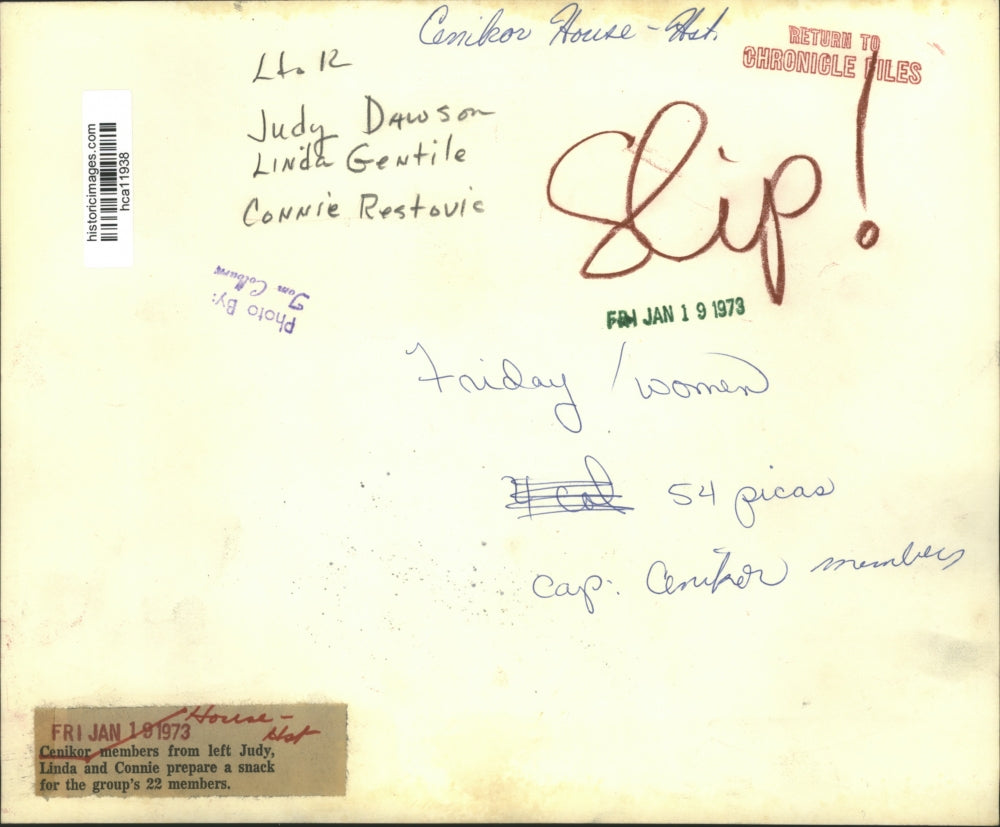 Cenikor House - Hst.
RETURN TO
CHRONICLE FILES
L to R
Judy Dawson
Linda Gentile
Connie Restovic
Slip!
historicimages.com
hca11938
Photo By:
Tom Colburn
FRI JAN 19 1973
Friday / women
4 col 54 picas
cap: Cenikor members
FRI JAN 19 1973
House -
Hst
Cenikor members from left Judy,
Linda and Connie prepare a snack
for the group's 22 members.